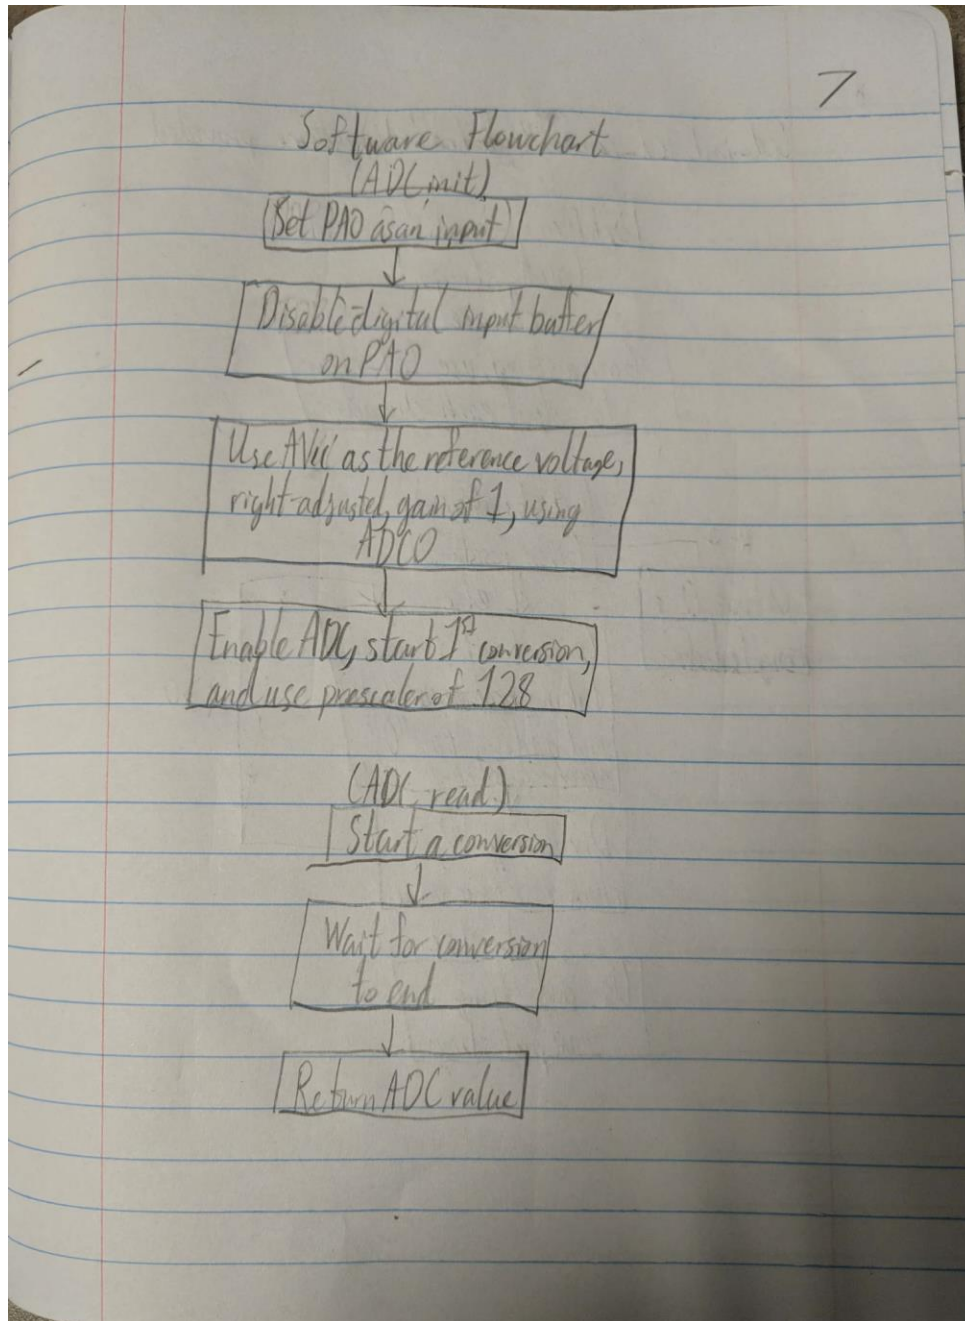 7
Software Flowchart
(ADC_init)
Set PA0 as an input
Disable digital input buffer
on PA0
Use AVcc as the reference voltage,
right-adjusted, gain of 1, using
ADC0
Enable ADC, start 1st conversion,
and use prescaler of 128
(ADC_read)
Start a conversion
Wait for conversion
to end
Return ADC value